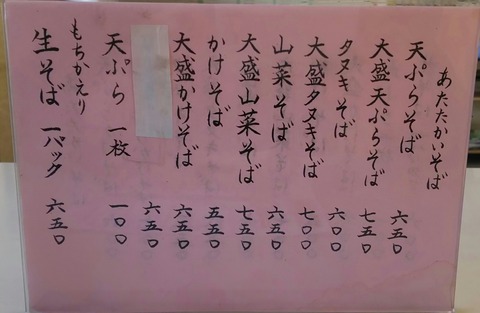 あたたかいそば
天ぷらそば 六五〇
大盛天ぷらそば 七五〇
タヌキそば 六〇〇
大盛タヌキそば 七〇〇
山菜そば 六五〇
大盛山菜そば 七五〇
かけそば 五五〇
大盛かけそば 六五〇
六五〇
天ぷら 一枚 一〇〇
もちかえり
生そば 一パック 六五〇